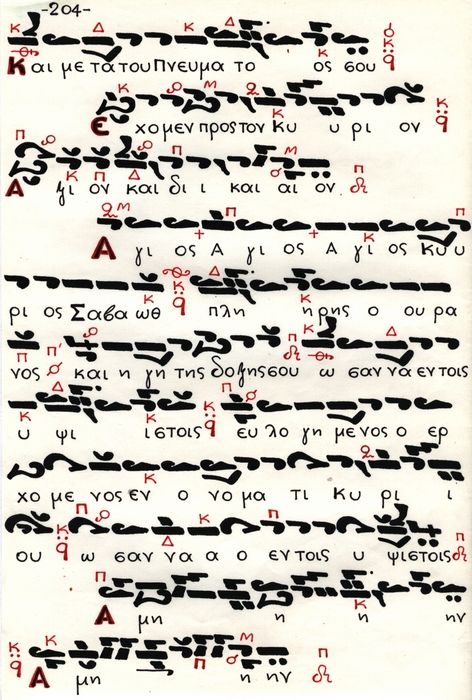 -204-
Και με τα του Πνευμα το ος σου
Εχομεν προς τον Κυ υ ρι ον
Αγι ον και δι ι και αι ον
Αγι ος Α γι ος Α γι ος Κυ υ
ρι ος Σαβα ωθ πλη ηρης ο ουρα
νος και η γη της δοξης σου ω σαν να εν τοις
υ ψι ιστοις ευ λο γη μενος ο ερ
χο με νος εν ο νο μα τι Κυ ρι ι
ου ω σαν να α ο εν τοις υ ψιστοις
Α μη η η ην
Α μη η ην